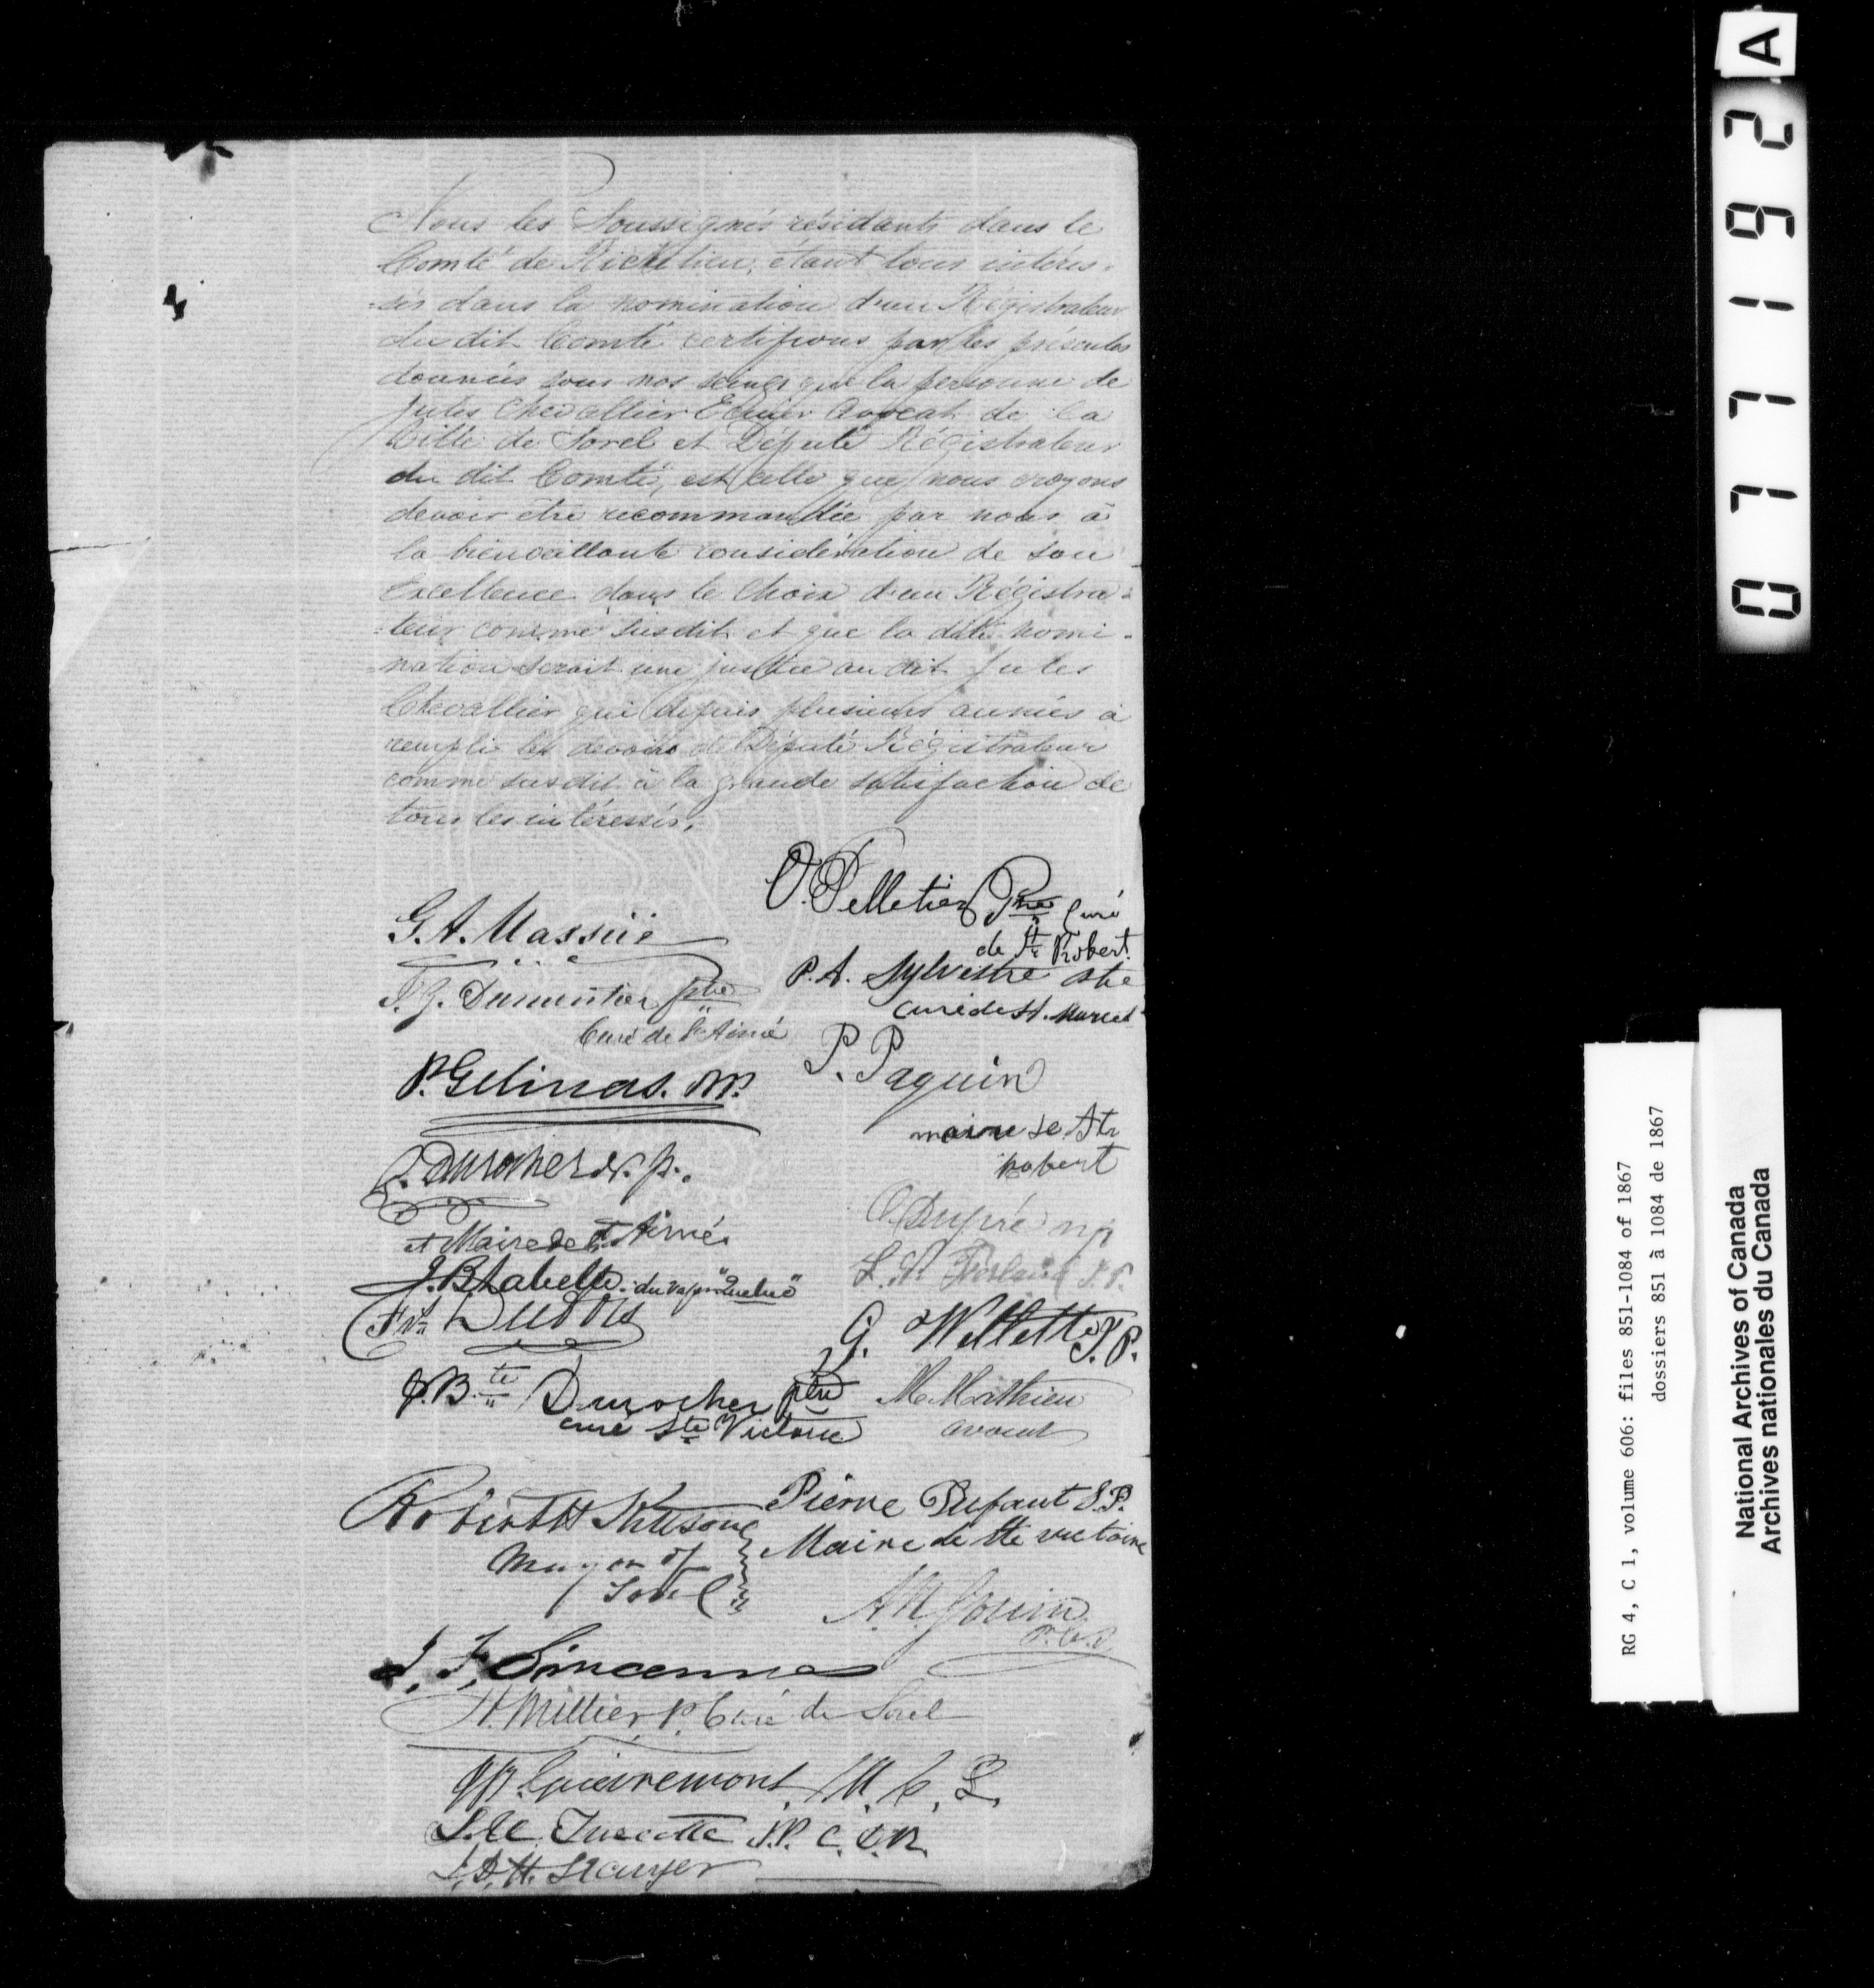 Nous les Soussignés résidants dans le
Comté de Richelieu, étant tous intéres-
=sés dans la nomination d'un Régistrateur
du dit Comté certifions par les présentes
données sous nos seings que la personne de
Jules Chevallier Ecuier Avocat de la
Ville de Sorel et Député Régistrateur
du dit Comté, est celle que nous croyons
devoir être recommandée par nous à
la bienveillante considération de Son
Excellence dans le choix d'un Régistra=
=teur comme susdit et que la dite nomi-
=nation serait une justice au dit Jules
Chevallier qui depuis plusieurs années à
rempli les devoirs de Député Régistrateur
comme susdit à la grande satisfaction de
tous les intéressés.
O. Pelletier Ptre Curé
de St Robert
G. A. Massüe
P. A. Sylvestre Ptre
curé de St. Marcel
Dumontier ptre
Curé de St Aimé
P. Gelinas. M.P.
P. Paquin
maire de St
robert
Durocher N.P.
et Maire de St Aimé
C. Dupré n p
J. B. Labelle du vapr "Quebec"
J.P.
G. Wellette J.P.
J. Bte Durocher ptre
curé Ste Victoire
M. Mathieu
avocat
Robert H Kittson
Mayor of
Sorel
Pierre Dufaut J.P.
Maire de Ste victoire
J. F. Sincennes
H. Millier P. Curé de Sorel
Guévremont, M. C. L.
Turcotte J.P. C.C.R.
0771192 A
RG 4, C 1, volume 606: files 851-1084 of 1867
dossiers 851 à 1084 de 1867
National Archives of Canada
Archives nationales du Canada